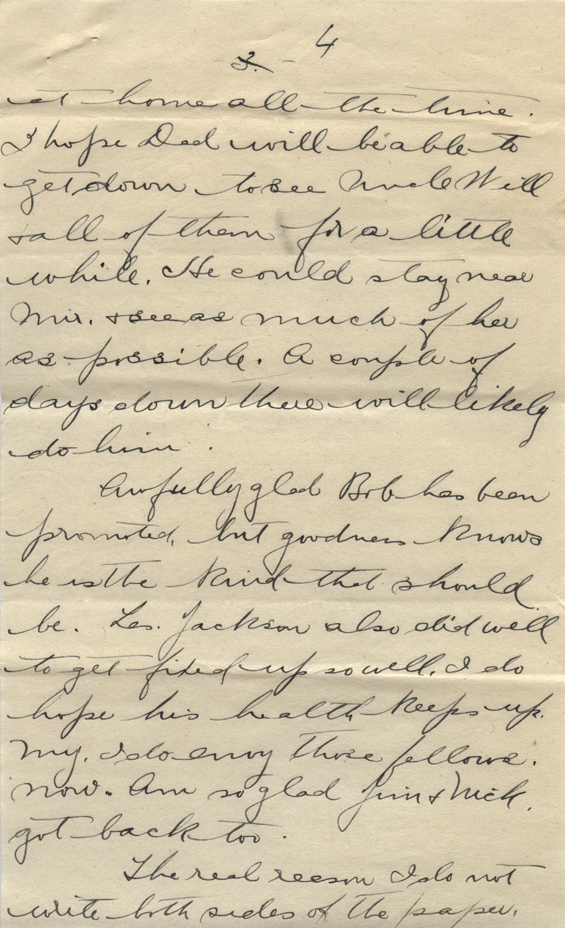 3. 4
at home all the time.
I hope Dad will be able to
get down to see Uncle Will
+ all of them for a little
while. He could stay near
Mir. + see as much of her
as possible. A couple of
days down there will likely
do him.
Awfully glad Bob has been
promoted, but goodness knows
he is the kind that should
be. Les. Jackson also did well
to get fixed up so well. I do
hope his health keeps up.
My, I do envy those fellows.
now. Am so glad Jim + Nick.
got back too.
The real reason I do not
write both sides of the paper.